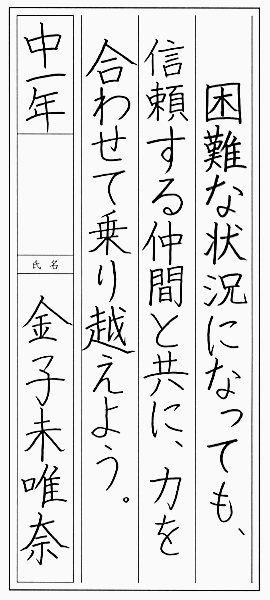 困難な状況になっても、
信頼する仲間と共に、力を
合わせて乗り越えよう。
中一年
氏名
金子未唯奈